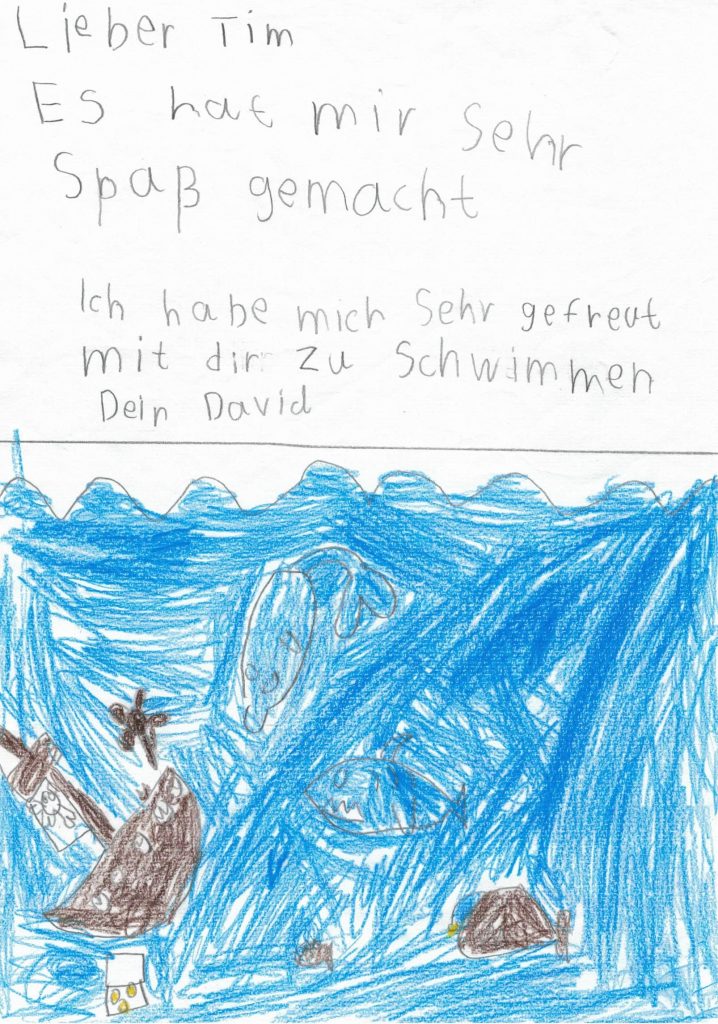 Lieber Tim
Es hat mir Sehr
Spaß gemacht
Ich habe mich Sehr gefreut
mit dir zu Schwimmen
Dein David